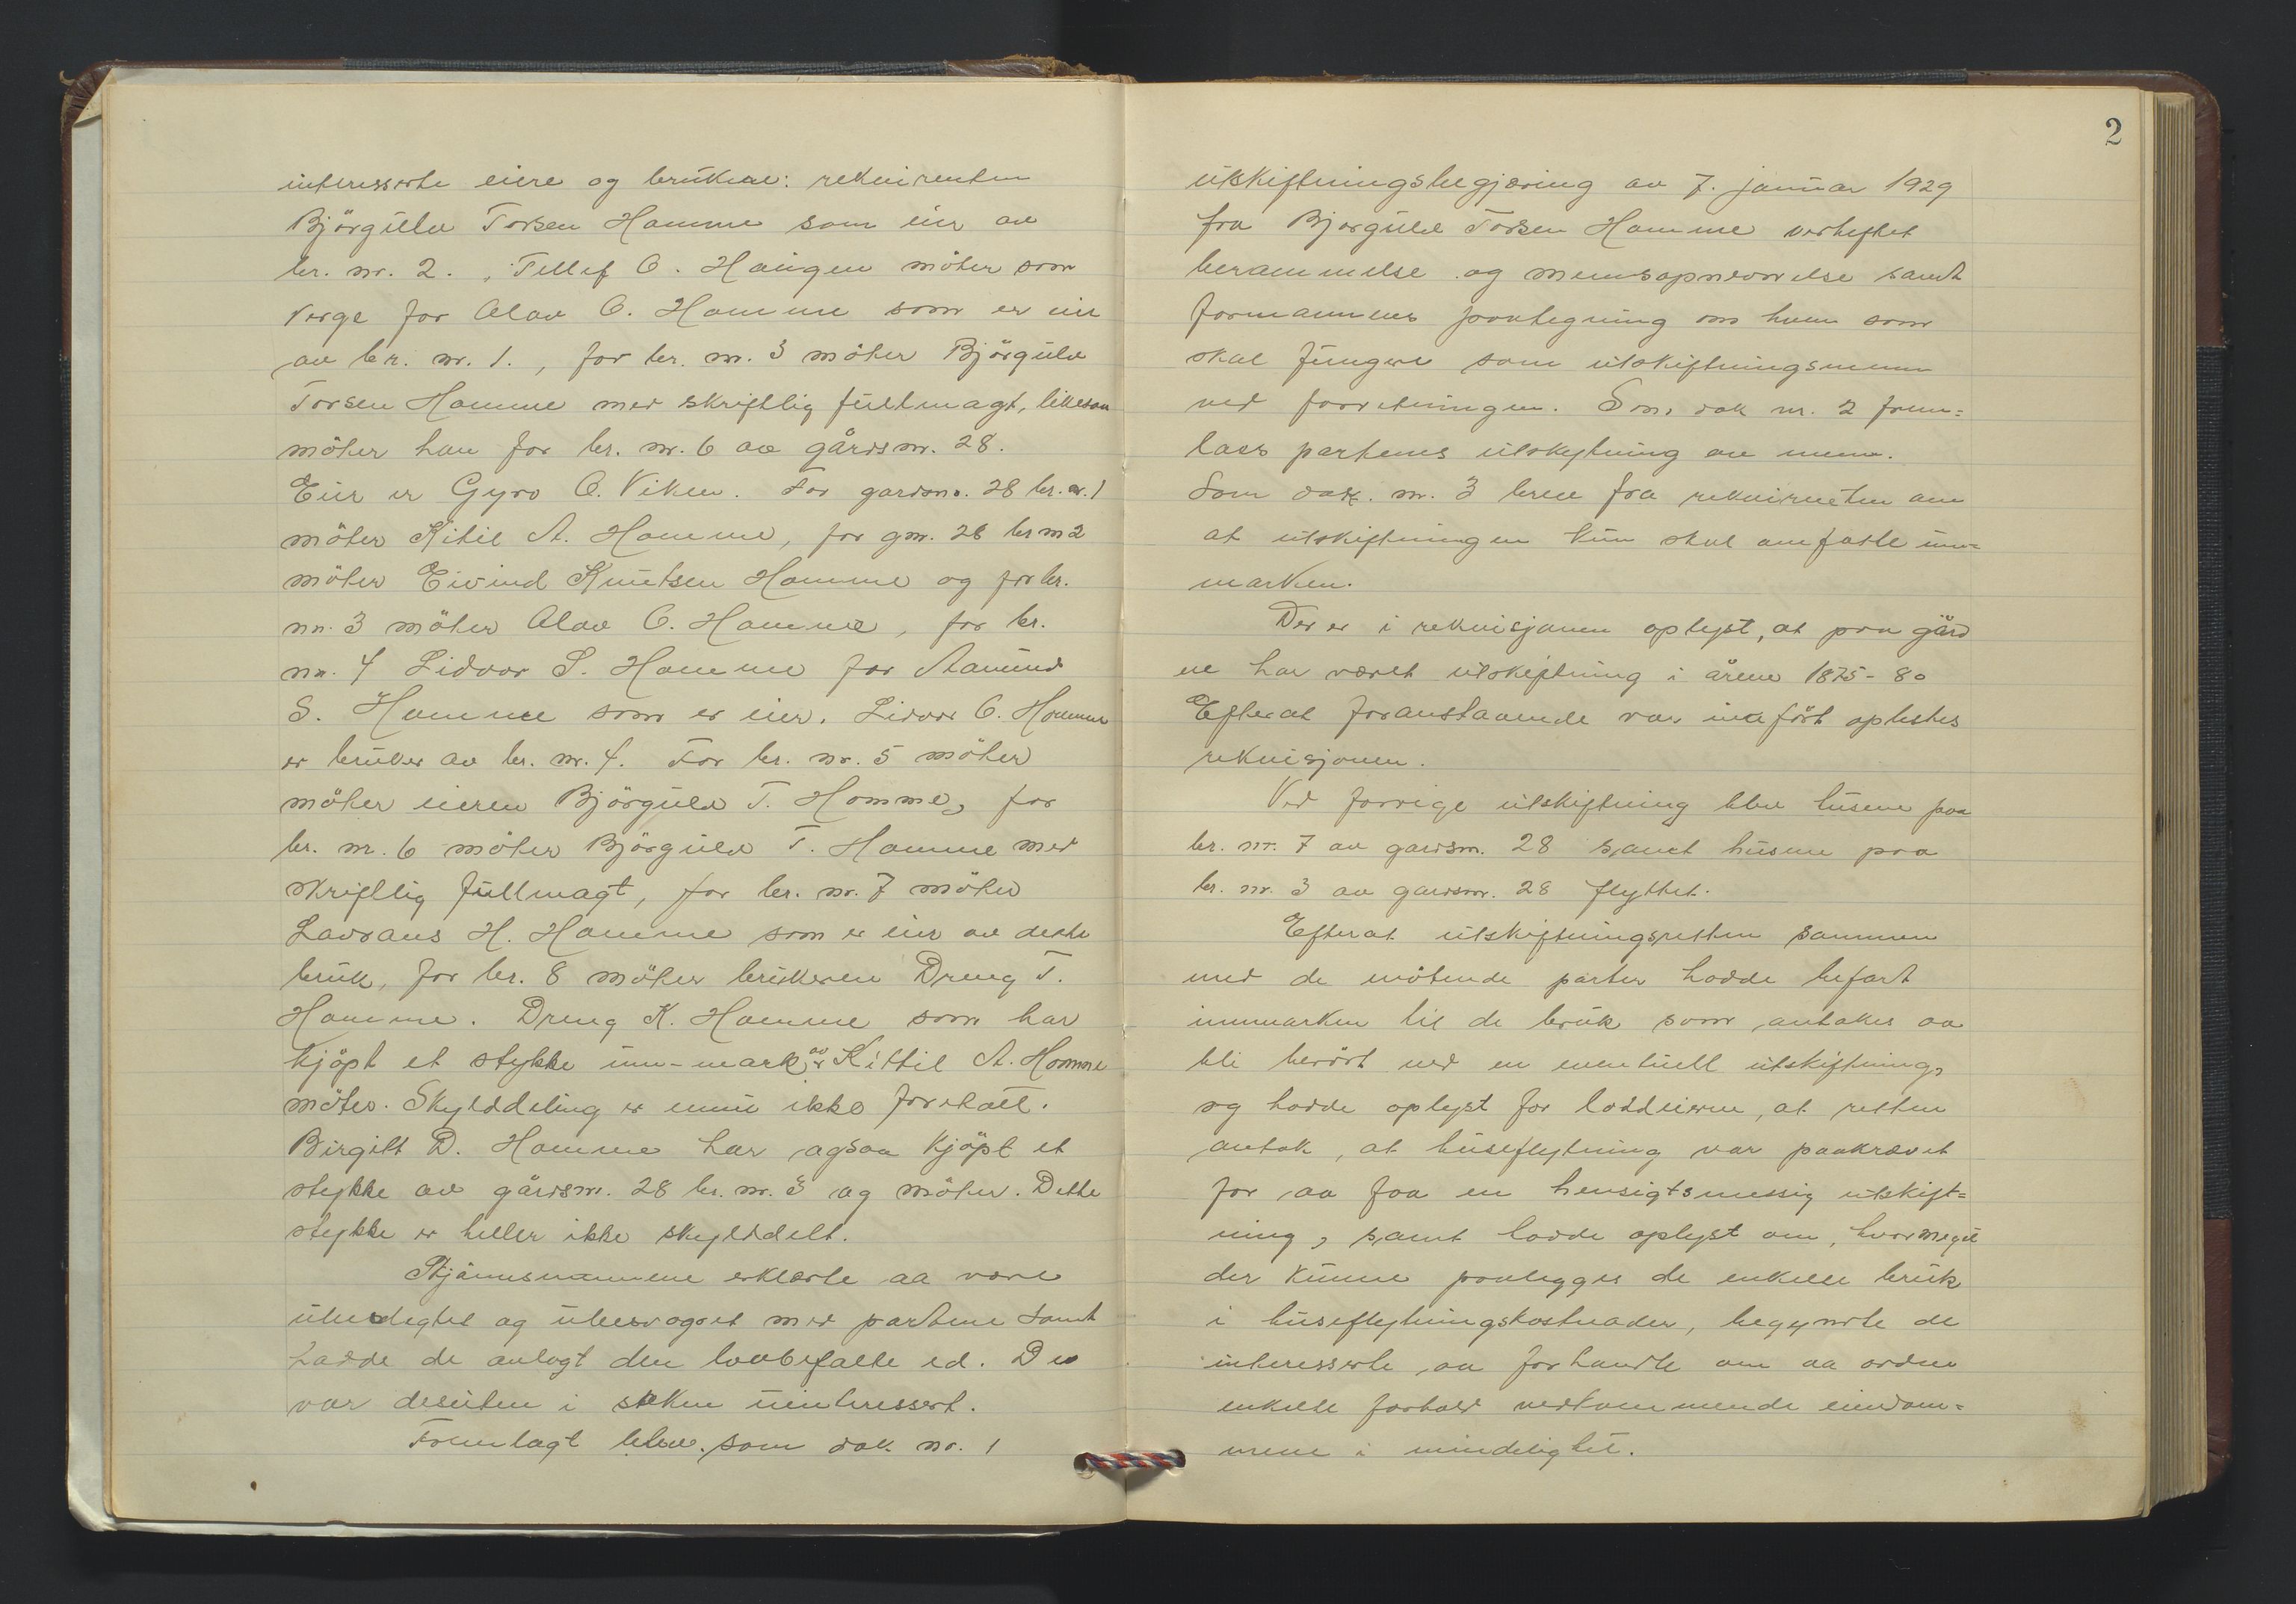 interesserte eiere og brukere: rekvirenten
Björgulv Torsen Homme som eier av
br. nr. 2. , Tellef O. Haugen möter som
verge for Olav O. Homme som er eier
av br. nr. 1. , for br. nr. 3 möter Björgulv
Torsen Homme med skriftlig fullmagt, likesom
möter han for br. nr. 6 av gårdsnr. 28.
Eier er Gyro O. Viken. For gardsnr. 28 br. nr. 1
möter Kitil A. Homme, for gnr. 28 br nr 2
möter Eivind Knutsen Homme og for br.
nr. 3 möter Olav O. Homme, for br.
nr. 4 Lidvor S. Homme for Aamund
S. Homme som er eier. Lidvor O. Homme
er bruker av br. nr. 4. For br. nr. 5 möter
möter eieren Björgulv T. Homme, for
br. nr. 6 möter Björgulv T. Homme med
skriftlig fullmagt, for br. nr. 7 möter
Lavrans H. Homme som er eier av dette
bruk, for br. 8 möter brukeren Dreng T.
Homme. Dreng K. Homme som har
kjöpt et stykke inn-mark av Kittil A. Homme
möter. Skylddeling er ennu ikke foretatt.
Birgitt D. Homme har ogsaa kjöpt et
stykke av gårdsnr. 28 br. nr. 3 og möter. Dette
stykke er heller ikke skylddelt.
Skjönnsmennene erklærte aa være
ubeslegtet og ubesvogret med partene samt
hadde de avlagt den lovbefalte ed. De
var desuten i saken uinteressert.
Fremlagt blev som dok nr. 1
2
utskiftningsbegjæring av 7. januar 1929
fra Bjorgulv Torsen Homme vedheftet
berammelse og mensopnevnelse samt
formannens paategning om hvem som
skal fungere som utskiftningsmenn
ved forretningen. Som dok nr. 2 frem=
laes partenes utskytning av menn.
Som dok. nr. 3 brev fra rekvirenten om
at utskiftningen kun skal omfatte inn=
marken.
Der er i rekvisjonen oplyst, at paa gård
ene har været utskiftning i årene 1875-80
Efterat foranstaaende var innfört oplestes
rekvisjonen.
Ved forrige utskiftning blev husene paa
br. nr. 7 av gardsnr. 28 samt husene paa
br. nr. 3 av gardsnr. 28 flyttet.
Efterat utskiftningsretten sammen
med de mötende parter hadde befart
innmarken til de bruk som antokes aa
bli berört ved en eventuell utskiftning,
og hadde oplyst for loddeierne, at retten
antok, at huseflytning var paakrævet
for aa faa en hensigtsmessig utskift=
ning, samt hadde oplyst om, hvormeget
der kunne paalegges de enkelte bruk
i huseflytningskostnader, begynte de
interesserte aa forhandle om aa ordne
enkelte forhold vedkommende eiendom=
mene i mindelighet.